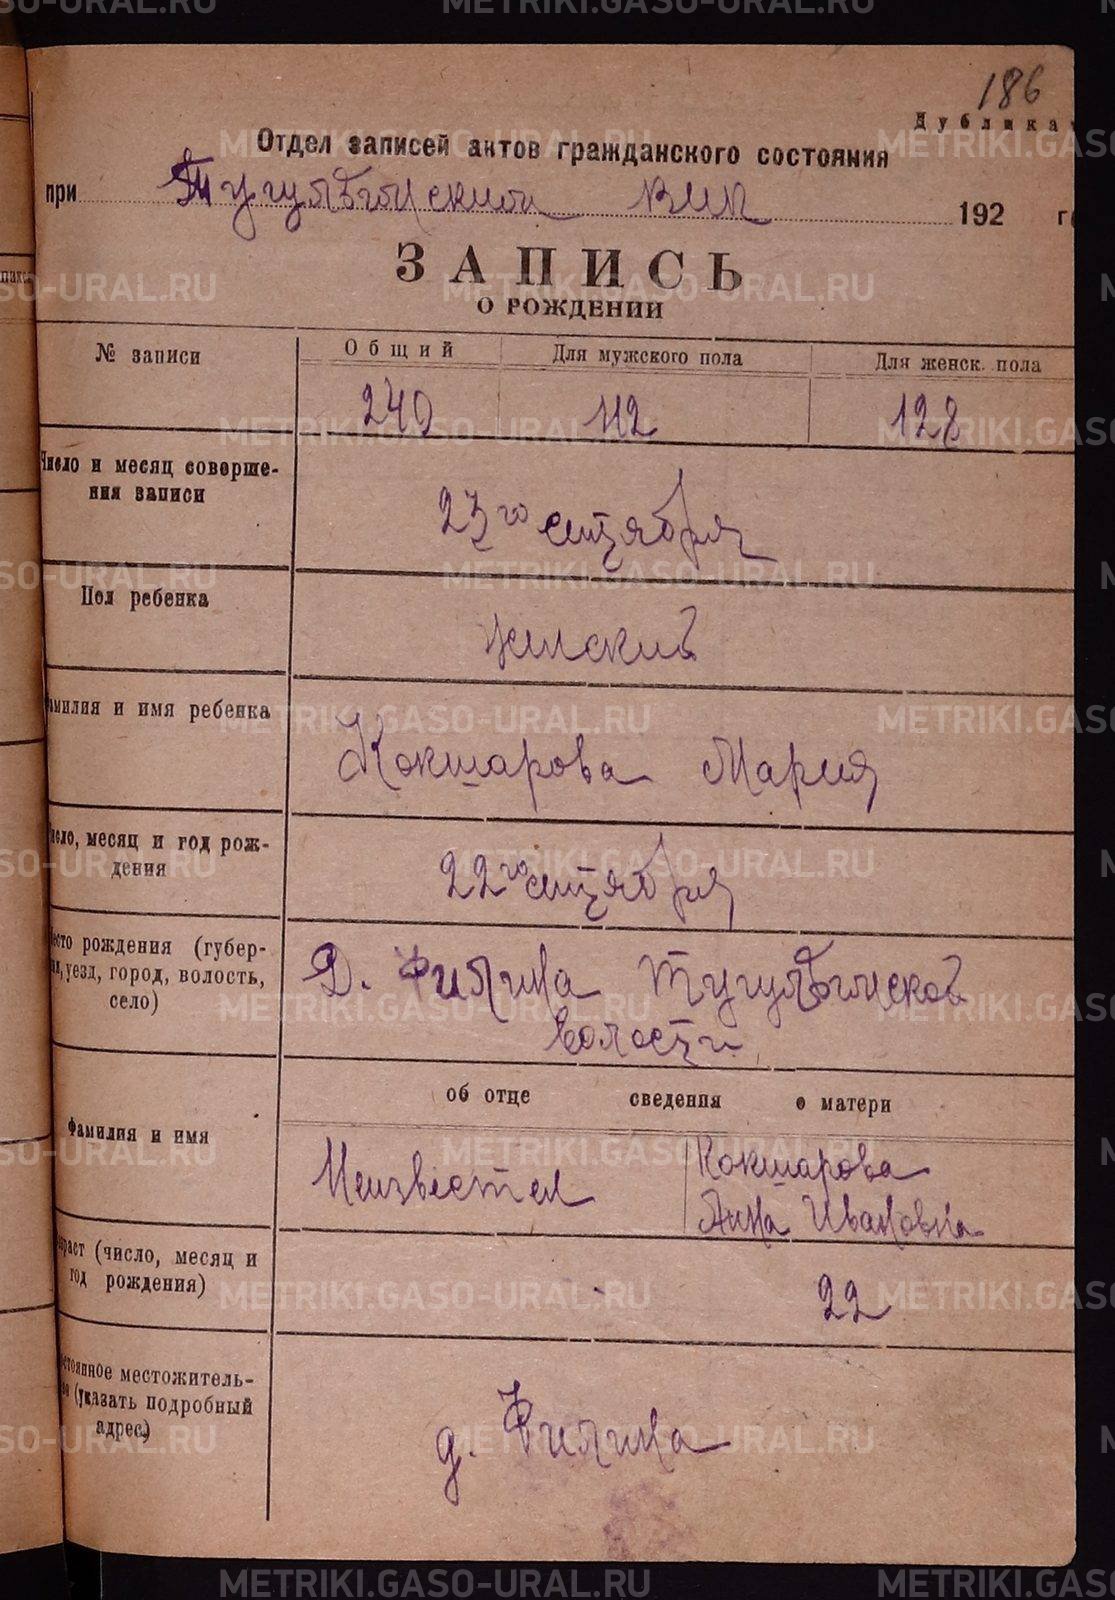 186
Дублика
Отдел записей актов гражданского состояния
при Тугулымском ВИК 192 г
ЗАПИСЬ
О РОЖДЕНИИ
№ записи
Общий Для мужского пола Для женск. пола
240 112 128
Число и месяц соверше-
ния записи
23го сентября
Пол ребенка
женский
амилия и имя ребенка
Кокшарова Мария
исло, месяц и год рож-
дения
22го сентября
сто рождения (губер-
уезд, город, волость,
село)
Д. Филина
волости
об отце сведения о матери
Фамилия и имя
Неизвестен
Кокшарова
Анна Ивановна
раст (число, месяц и
год рождения)
22
стоянное местожитель-
во (указать подробный
адрес)
д. Филина
METRIKI.GASO-URAL.RU